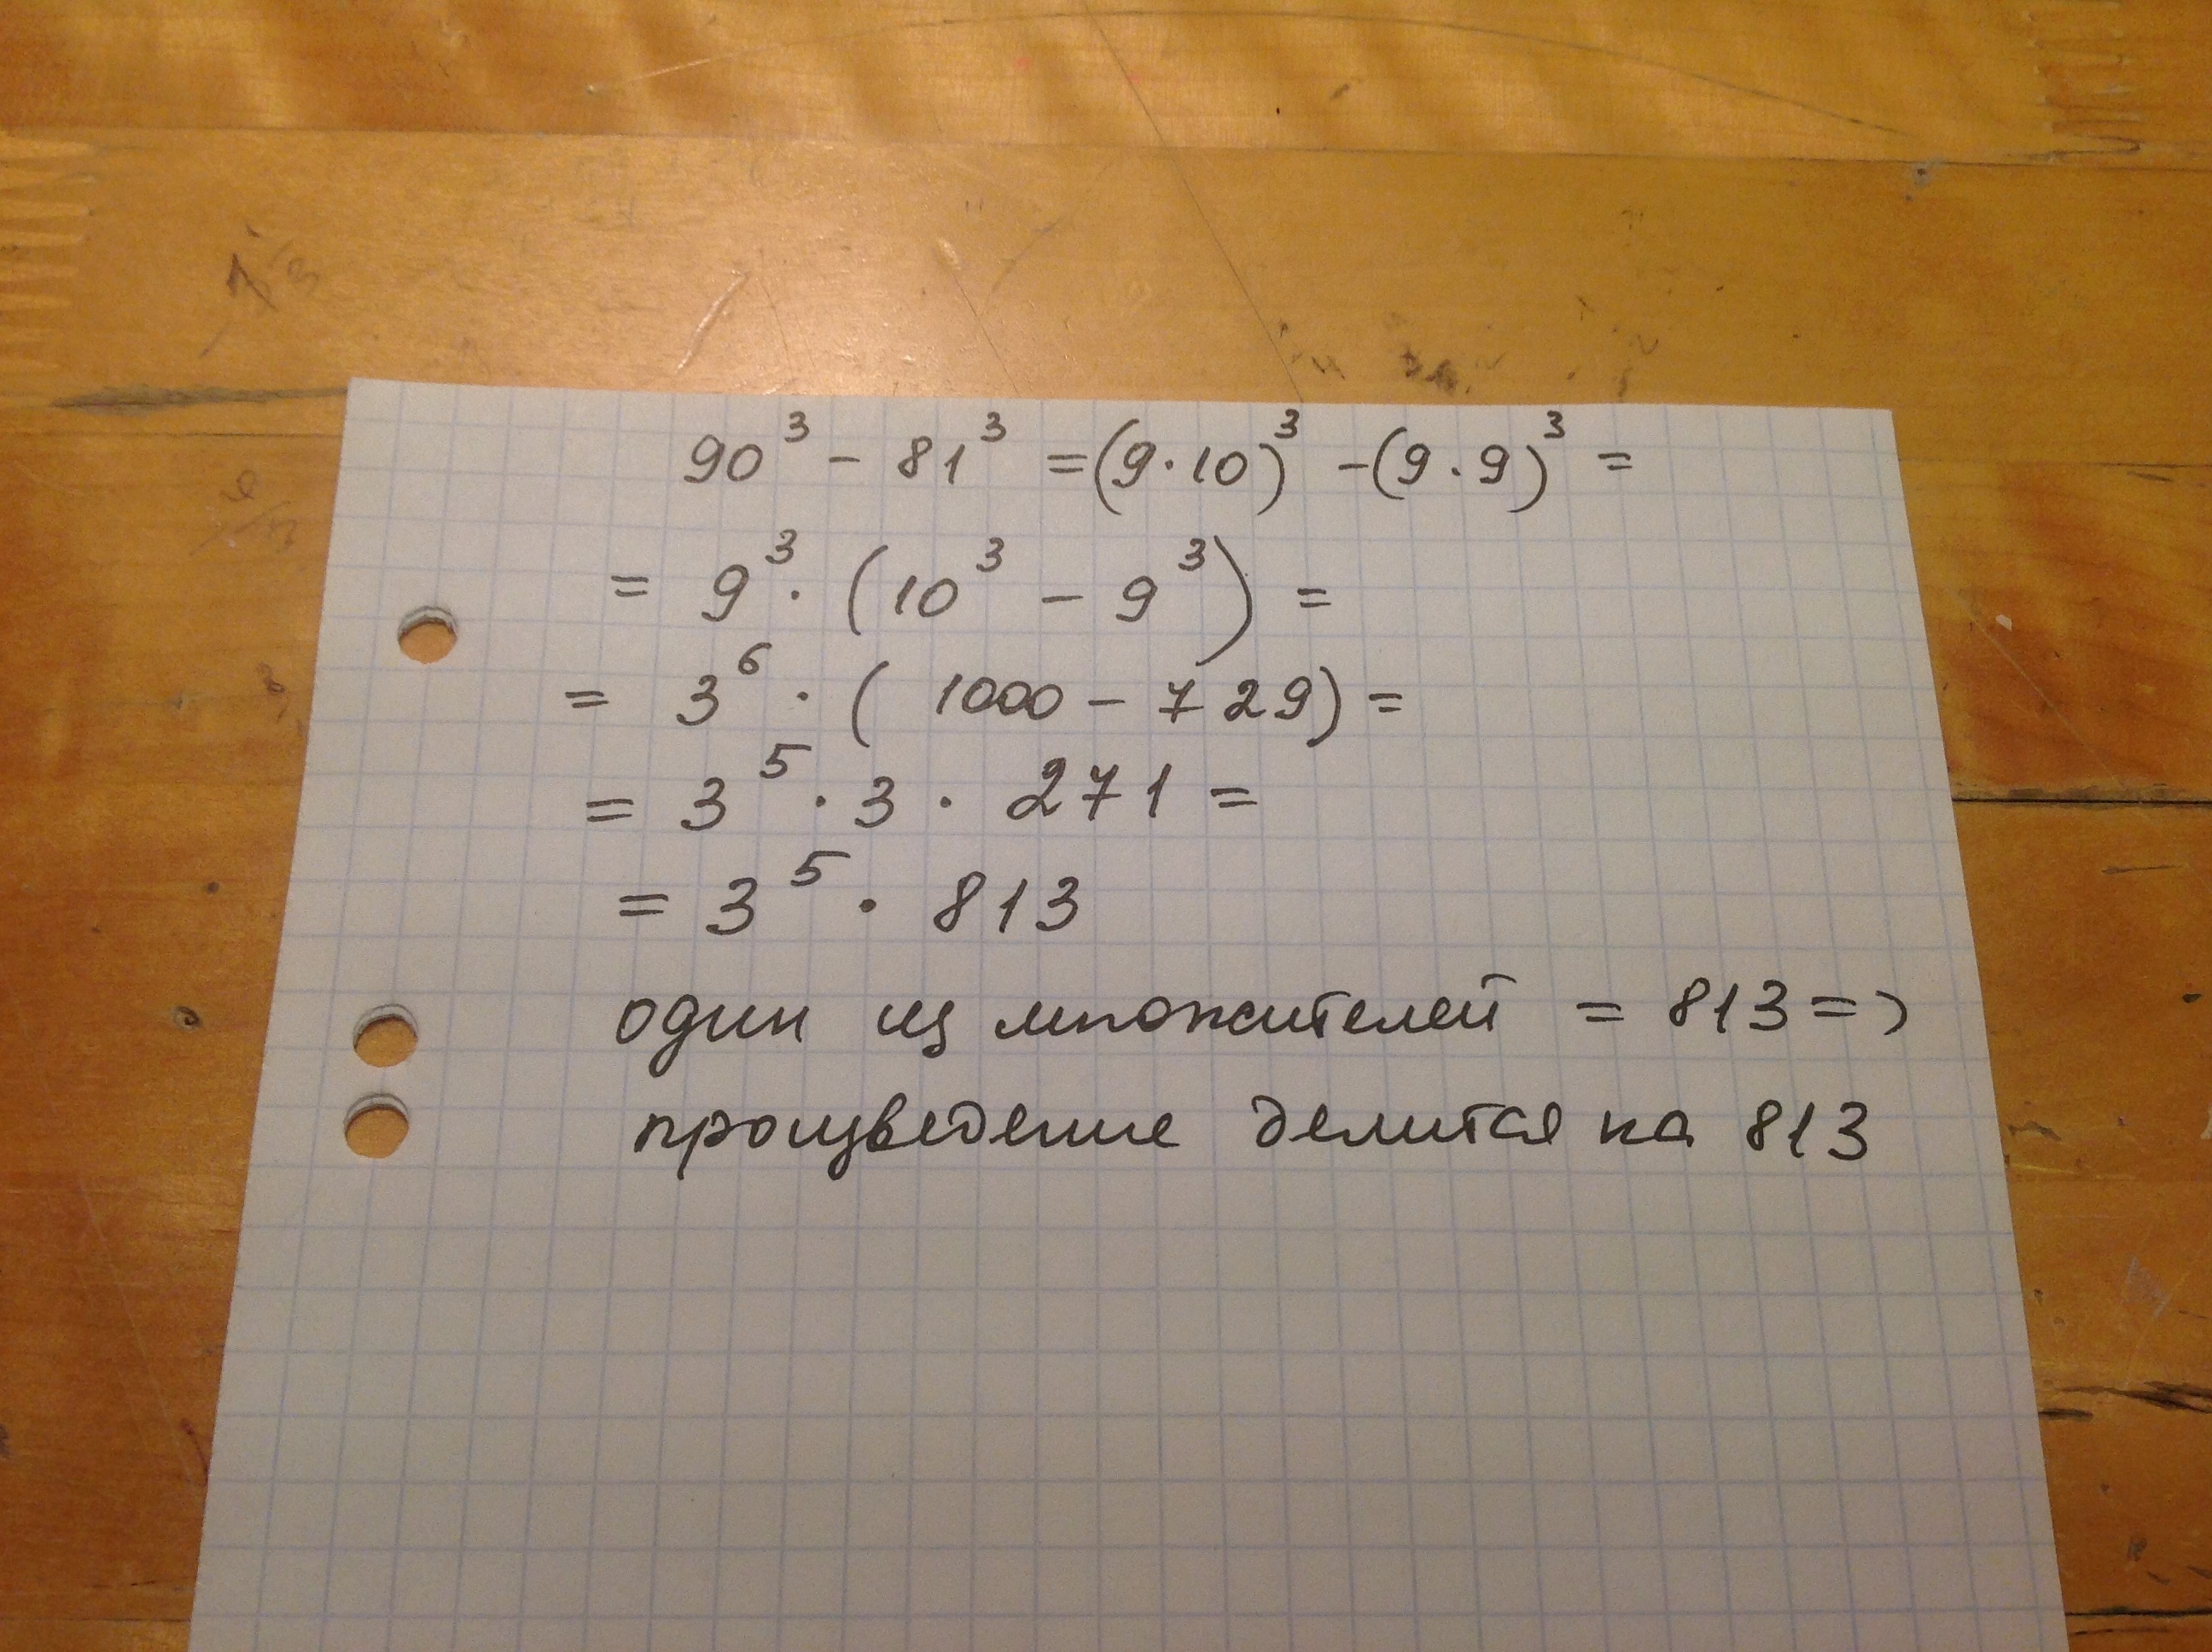 90³ - 81³ = (9·10)³ - (9·9)³ =
= 9³ · (10³ - 9³) =
= 3⁶ · (1000 - 729) =
= 3⁵ · 3 · 271 =
= 3⁵ · 813
один из множителей = 813 =>
произведение делится на 813